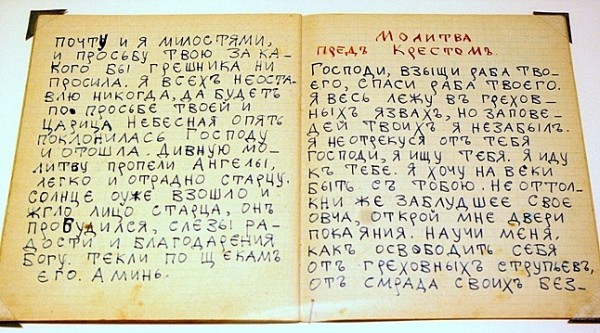 почту и я милостями,
и просьбу твою за ка-
кого бы грешника ни
просила. Я всехъ неоста-
влю никогда, да будетъ
по просьбе твоей и
Царица Небесная опять
поклонилась Господу
и отошла. Дивную мо-
литву пропели Ангелы,
легко и отрадно старцу.
Солнце оуже взошло и
жгло лицо старца, онъ
пробудился, слезы ра-
дости и благодарения
Богу. Текли по щекамъ
его. Аминь.
Молитва
предъ Крестомъ.
Господи, взыщи раба тво-
его, спаси раба твоего.
Я весь лежу въ грехов-
ныхъ язвахъ, но запове-
дей твоихъ я незабылъ.
Я неотрекуся отъ тебя
Господи, я ищу тебя. Я иду
къ тебе. Я хочу на веки
быть съ тобою. Не оттол-
кни же заблудшее свое
овча, открой мне двери
покаяния. Научи меня,
какъ освободить себя
отъ греховныхъ струпьевъ,
отъ смрада своихъ без-